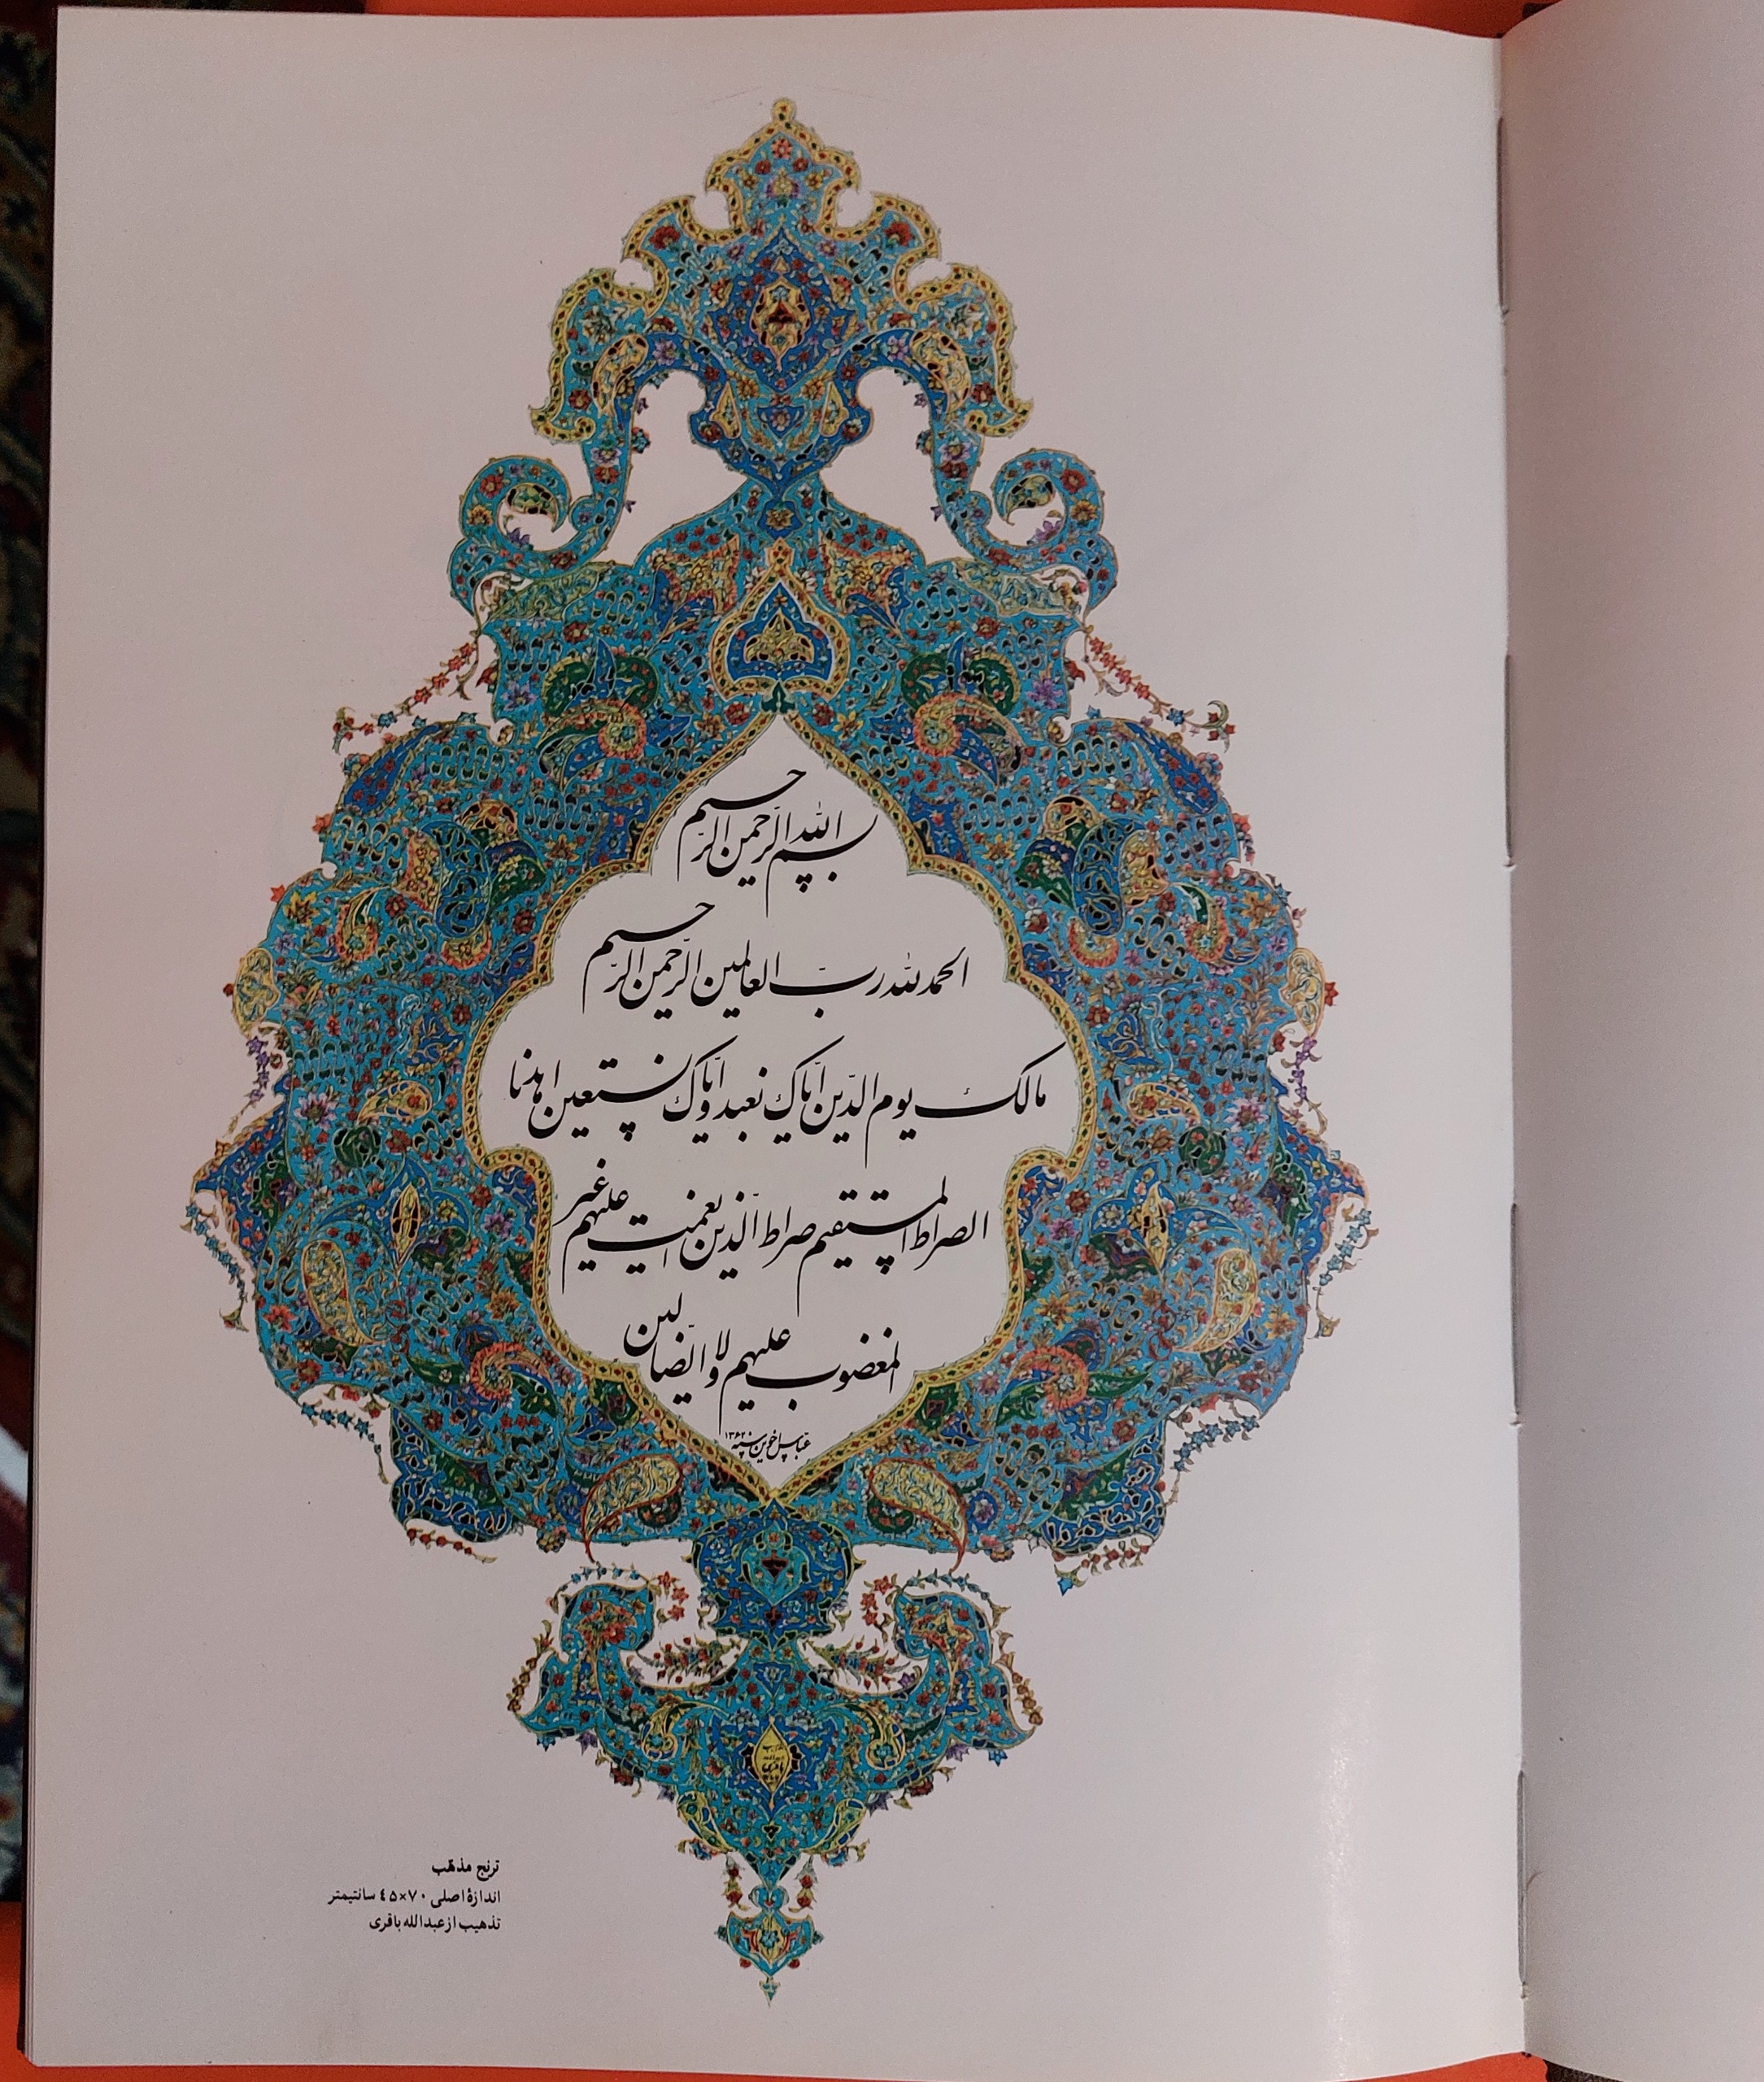 بسم الله الرّحمن الرّحیم
الحمدلله ربّ العالمین الرّحمن الرّحیم
مالک یوم الدّین ایّاک نعبد و ایّاک نستعین اهدنا
الصراط المستقیم صراط الّذین انعمت علیهم غیر
المغضوب علیهم ولا الضّالین
عبّاس اخوین سنه ۱۳۶۲
باقری
ترنج مذهّب
اندازهٔ اصلی ۷۰×٤۵ سانتیمتر
تذهیب از عبدالله باقری